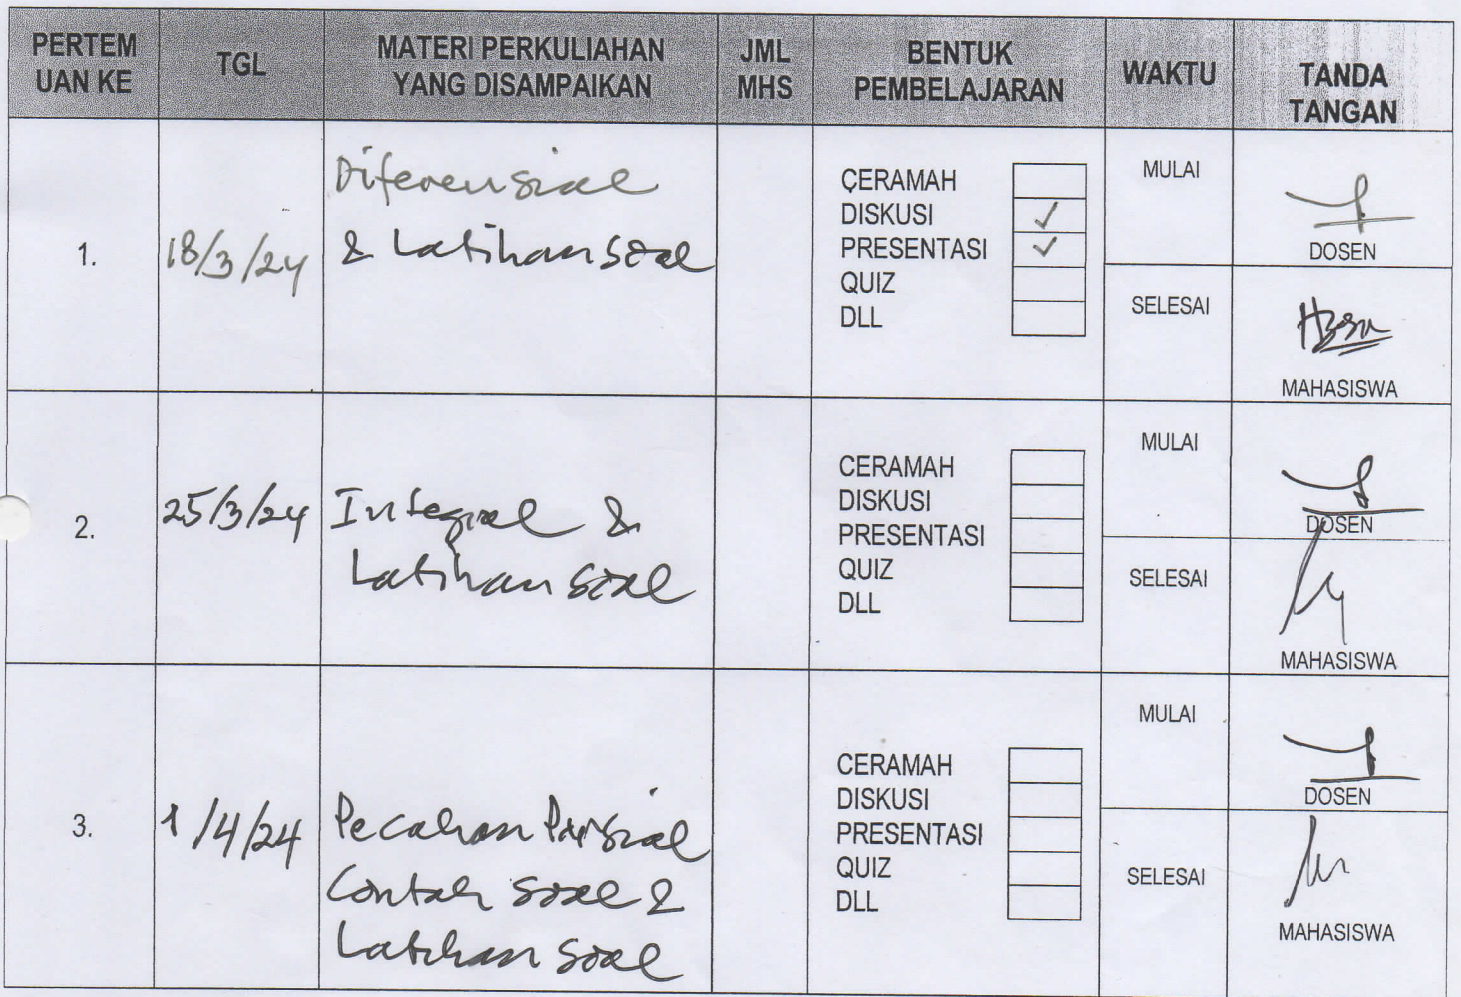 PERTEM
UAN KE
TGL
MATERI PERKULIAHAN
YANG DISAMPAIKAN
JML
MHS
BENTUK
PEMBELAJARAN
WAKTU
TANDA
TANGAN
1.
18/3/24
Diferensial
& Latihan soal
CERAMAH
DISKUSI ✓
PRESENTASI ✓
QUIZ
DLL
MULAI
DOSEN
SELESAI
MAHASISWA
2.
25/3/24
Integral &
Latihan soal
CERAMAH
DISKUSI
PRESENTASI
QUIZ
DLL
MULAI
DOSEN
SELESAI
MAHASISWA
3.
1/4/24
Pecahan Parsial
Contoh soal &
Latihan soal
CERAMAH
DISKUSI
PRESENTASI
QUIZ
DLL
MULAI
DOSEN
SELESAI
MAHASISWA